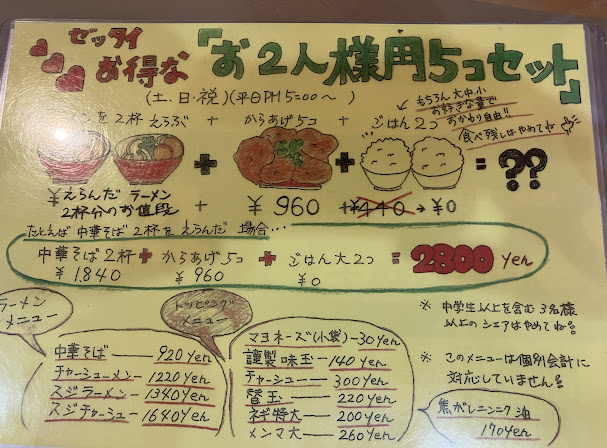 ゼッタイ
お得な
「お2人様円5コセット」
(土、日・祝)(平日PM5:00〜 )
もちろん大中小
お好きな量で
おかわり自由!!
食べ残しはやめてね
メンを2杯えらぶ + からあげ5コ + ごはん2コ
+ + = ??
¥えらんだラーメン
2杯分のお値段 + ¥960 + ¥440→¥0
たとえば中華そば2杯をえらんだ場合…
中華そば2杯+からあげ5コ + ごはん大2コ = 2800 yen
¥1,840 ¥960 ¥0
ラーメン
メニュー
中華そば — 920yen
チャーシューメン — 1220yen
スジラーメン — 1340yen
スジチャーシュー — 1640yen
トッピング
メニュー
マヨネーズ(小袋) — 30yen
謹製味玉 — 140yen
チャーシュー — 300yen
替玉 — 220yen
ネギ特大 — 200yen
メンマ大 — 260yen
※ 中学生以上を含む3名様
以上のシェアはやめてね!
※ このメニューは個別会計に
対応していません!
焦がしニンニク油
170yen